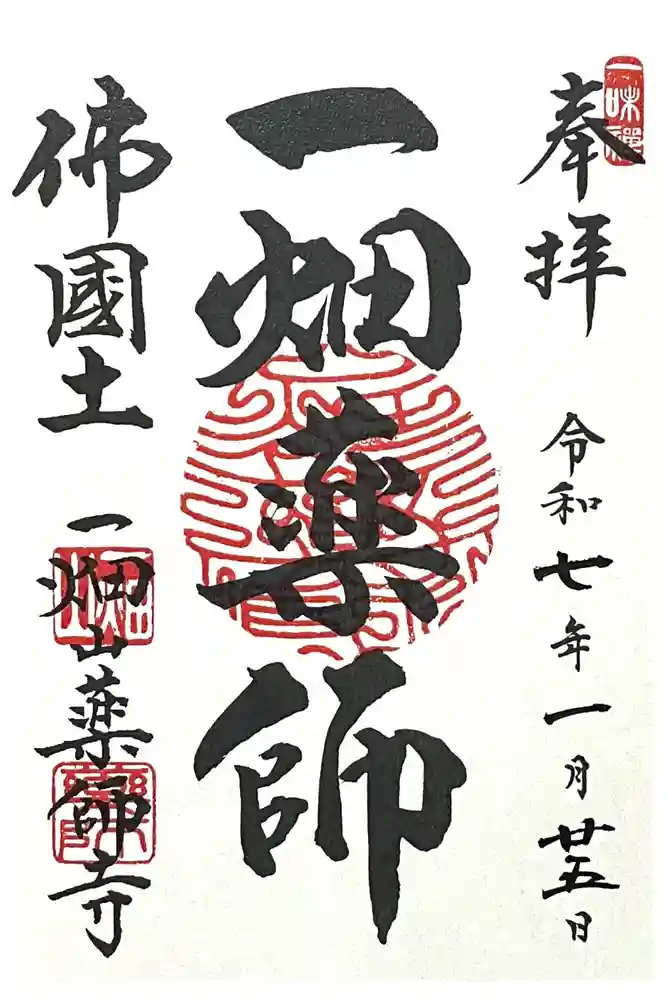 一味禅
奉拝
令和七年一月廿五日
一畑薬師
佛國土
一畑山薬師寺